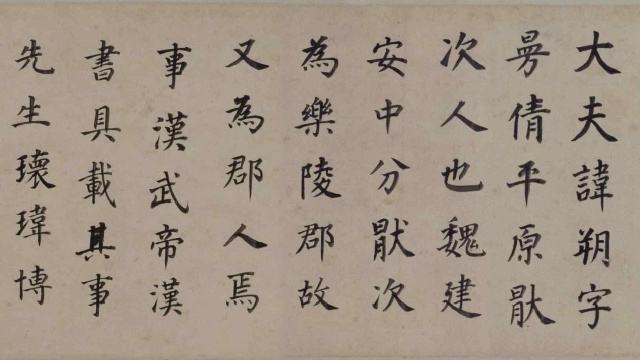 大夫諱朔字
曼倩平原猒
次人也魏建
安中分猒次
為樂陵郡故
又為郡人焉
事漢武帝漢
書具載其事
先生瓌瑋博